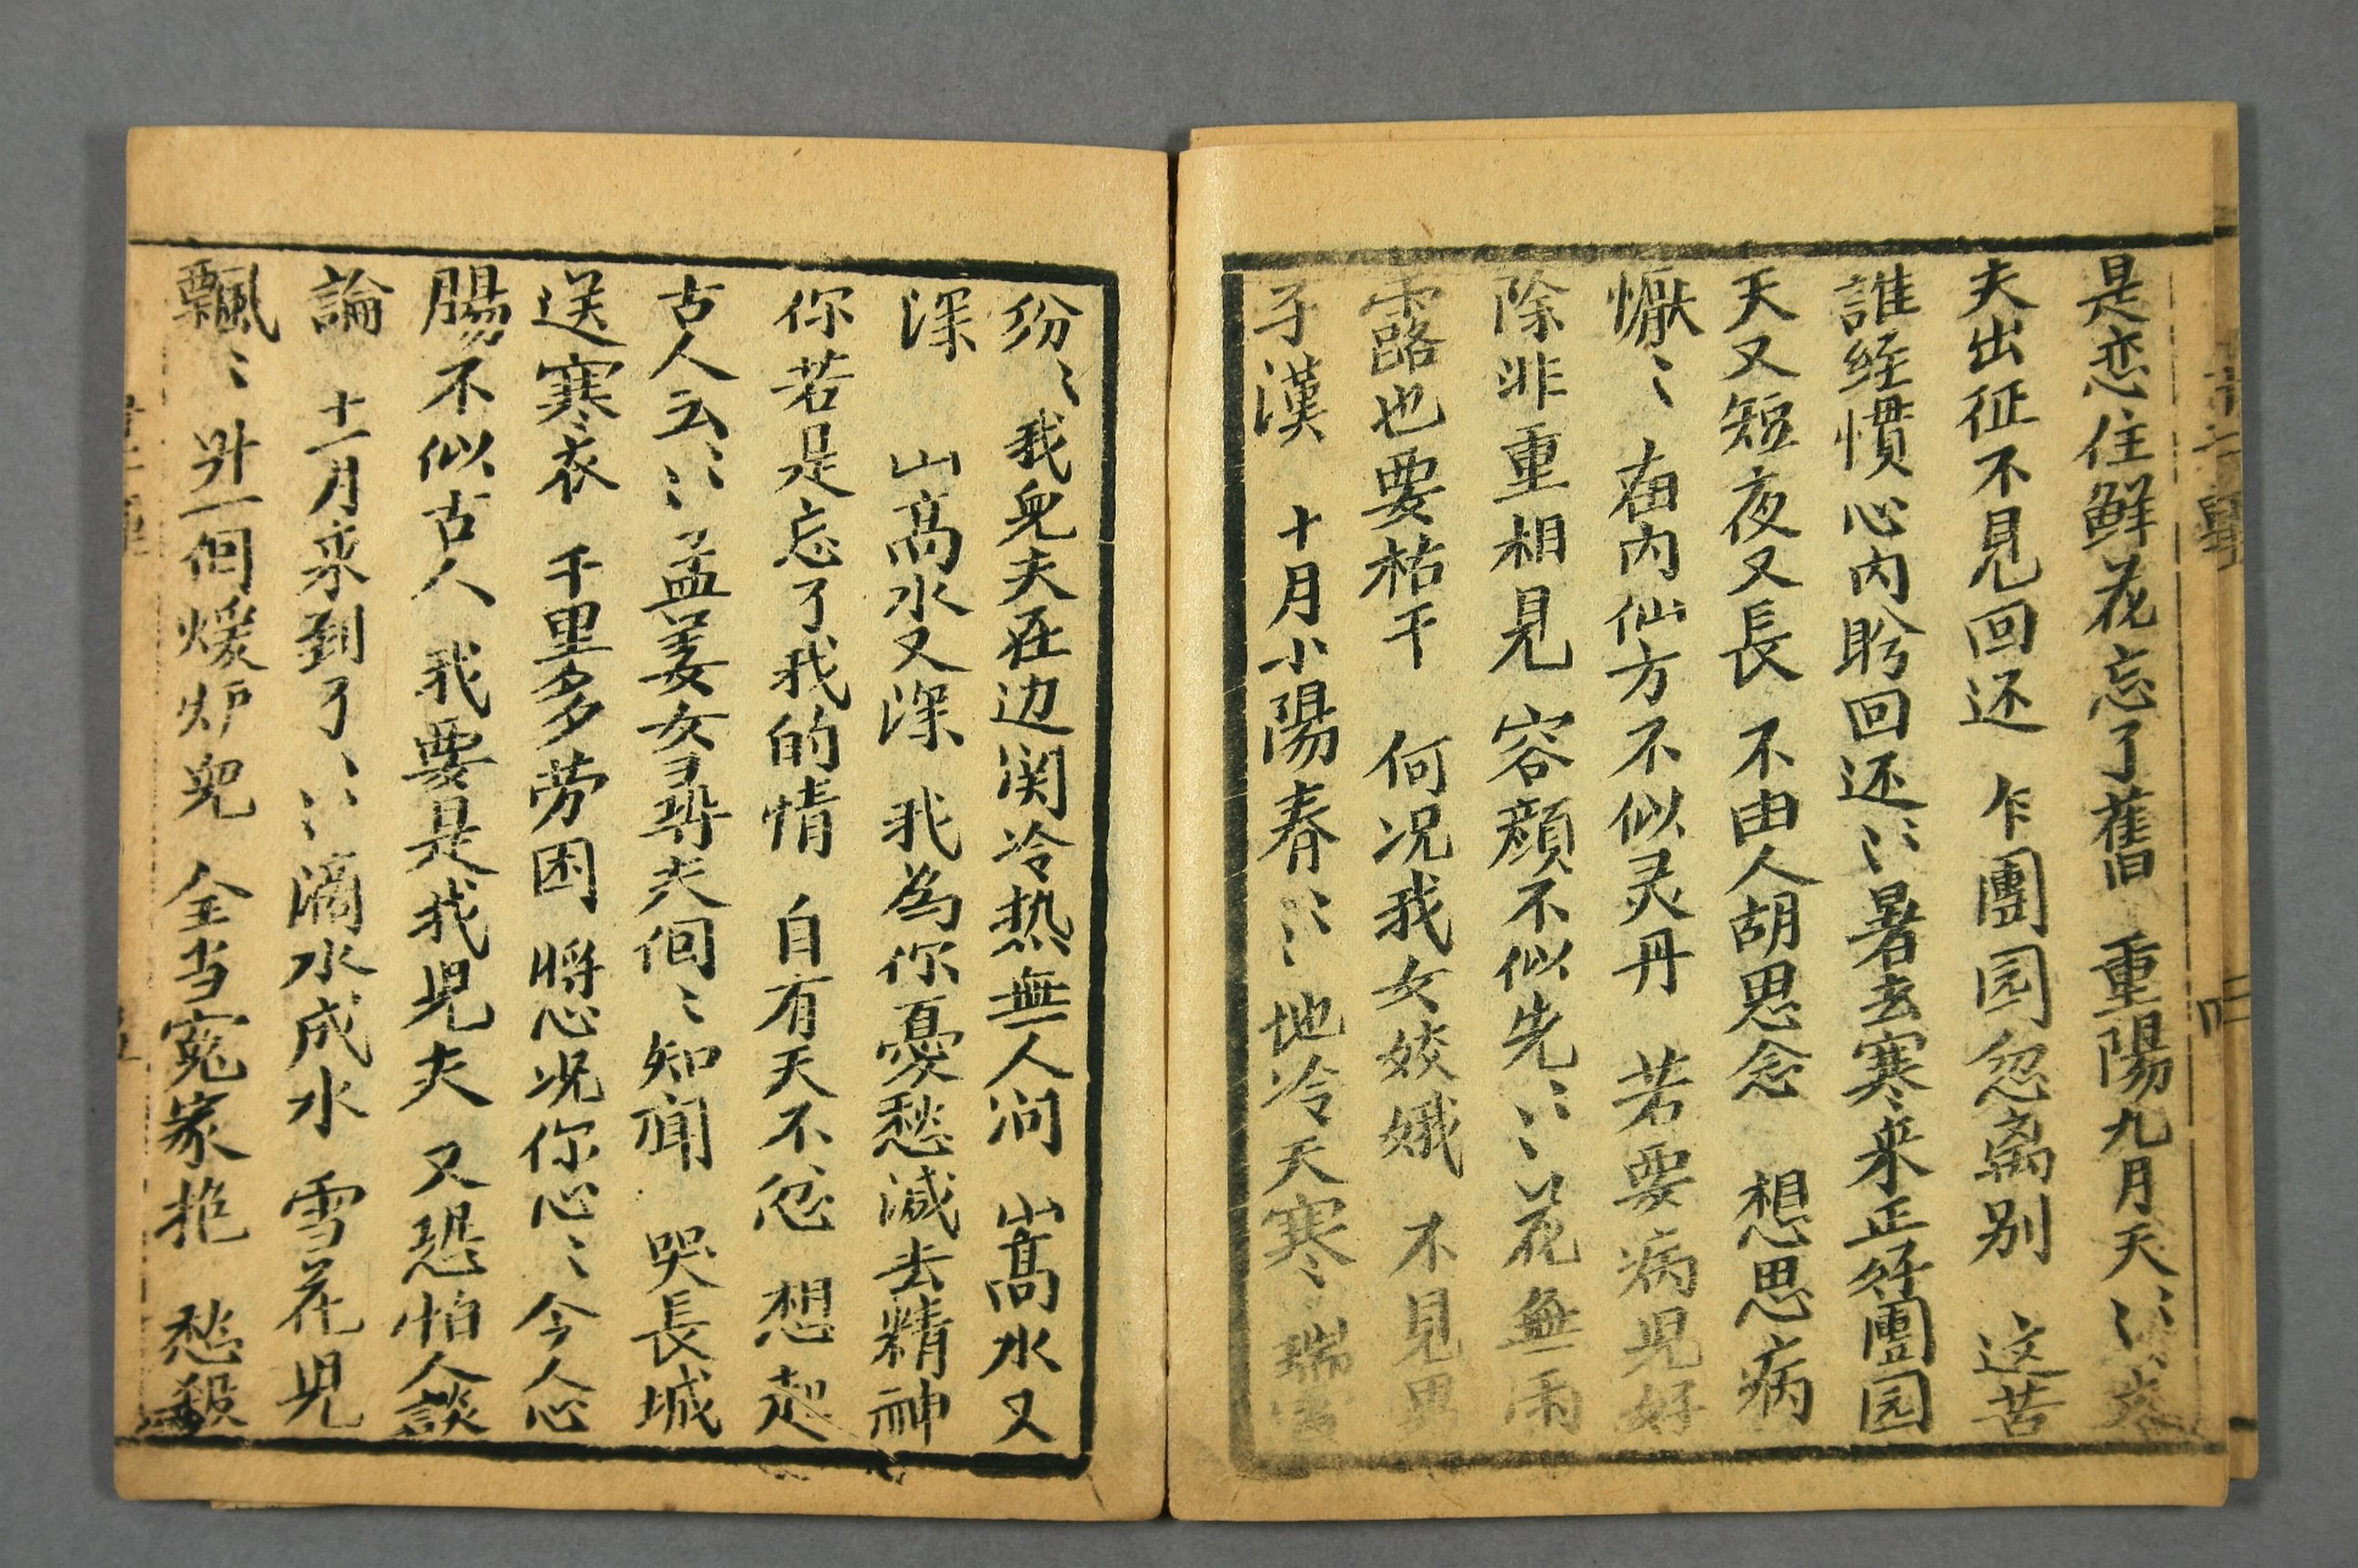 是恋住鲜花忘了舊　重陽九月天〻〻丈
夫出征不見回还　乍團园忽离别　这苦
誰经慣心内盼回还〻〻暑去寒来正好團园
天又短夜又長　不由人胡思念　想思病
懨〻　海内仙方不似灵丹　若要病児好
除非重相見　容颜不似先〻〻花無雨
露也要枯干　何况我女姣娥　不見男
子漢　十月小陽春〻〻地冷天寒瑞雪
纷〻我児夫在边関冷热無人问　山髙水又
深　山髙水又深　我為你憂愁減去精神
你若是忘了我的情　自有天不忿　想起
古人云〻〻孟姜女尋夫佪〻知聞　哭長城
送寒衣　千里多劳困　將心况你心〻今人心
腸不似古人　我要是我児夫　又恐怕人談
論　十一月来到了〻〻滴水成氷　雪花児
飄〻　㪷一個煖炉児　全当寃家抱　愁殺